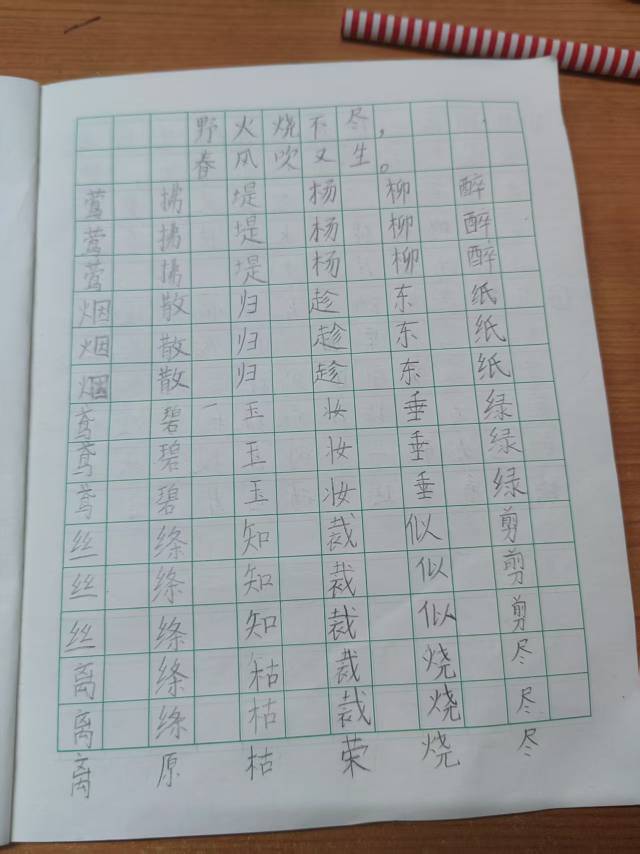 野火烧不尽，
春风吹又生。
莺 拂 堤 杨 柳 醉
莺 拂 堤 杨 柳 醉
莺 拂 堤 杨 柳 醉
烟 散 归 趁 东 纸
烟 散 归 趁 东 纸
烟 散 归 趁 东 纸
鸢 碧 玉 妆 垂 绿
鸢 碧 玉 妆 垂 绿
鸢 碧 玉 妆 垂 绿
丝 绦 知 裁 似 剪
丝 绦 知 裁 似 剪
丝 绦 知 裁 似 剪
离 绦 枯 裁 烧 尽
离 绦 枯 裁 烧 尽
离 原 枯 荣 烧 尽